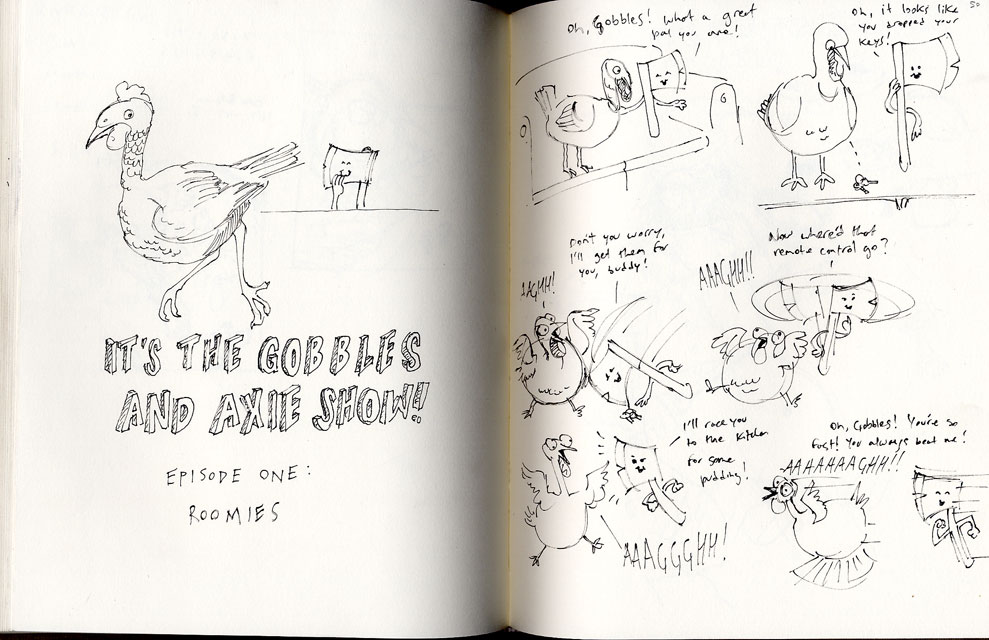 IT'S THE GOBBLES
AND AXIE SHOW!!
EPISODE ONE:
ROOMIES
50
Oh, Gobbles! What a great
pal you are!
Oh, it looks like
you dropped your
keys!
Don't you worry,
I'll get them for
you, buddy!
AAGHH!
Now where'd that
remote control go?
AAAGHH!!
I'll race you
to the kitchen
for some
pudding!
AAAGGGHH!
Oh, Gobbles! You're so
fast! You always beat me!
AAAAAAAGHH!!